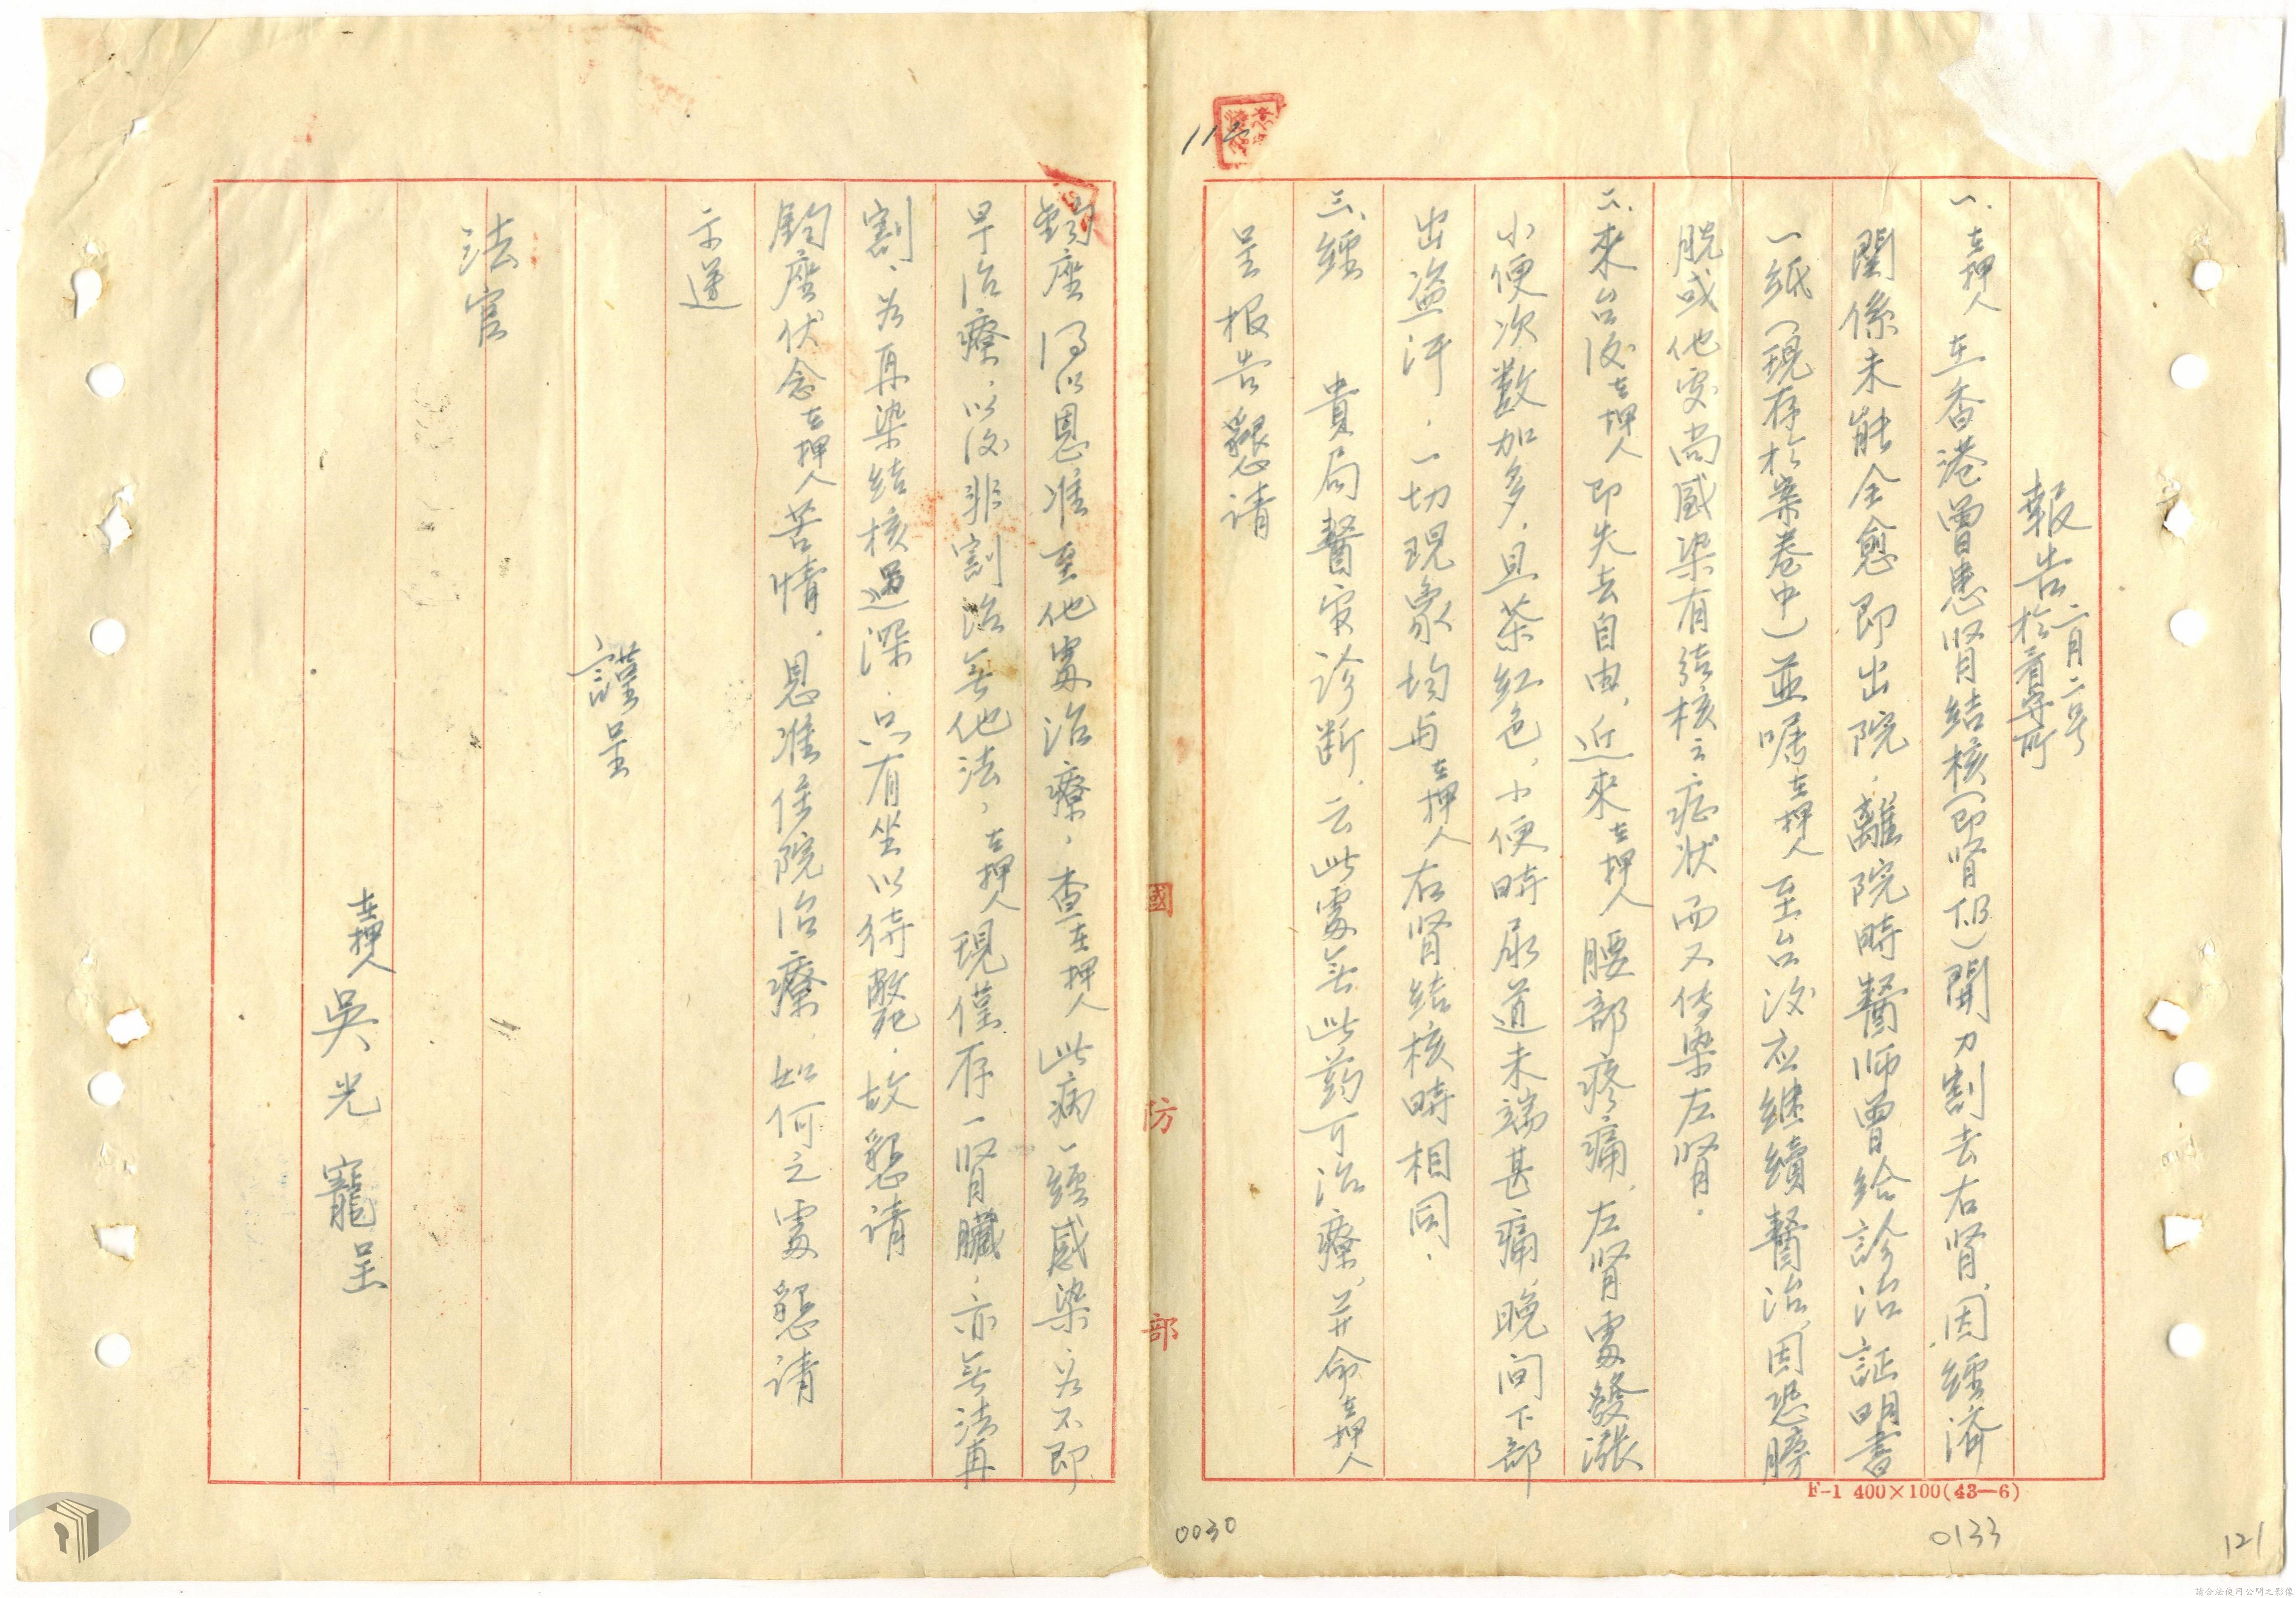 報告 二月二号 於看守所
一、在押人 在香港曾患肾结核(即肾T.B.)開刀割去右肾,因經濟
関係未能全愈即出院,離院時醫师曾给診治証明書
一纸(現存於案卷中)並嘱在押人至台后应继續醫治,因恐膀
胱或他处尚感染有结核之症状而又传染左肾.
二.來台后在押人即失去自由,近來在押人腰部疼痛,左肾處發漲
小便次数加多,且茶红色,小便時尿道末端甚痛,晚间下部
出盗汗,一切現象均与在押人右肾结核時相同.
三、經 貴局醫官诊断,云此處無此药可治療,并命在押人
呈报告懇请
鈞座 准至他處治療,查在押人此病一經感染,若不即
早治療,以后非割治無他法,在押人現僅存一肾臟,亦無法再
割,若再染结核過深,只有坐以待斃,故懇请
鈞座伏念在押人苦情,恩准住院治療,如何之處懇请
示遵
謹呈
法官
在押人 吳光寵呈
國防部
F-1 400×100(43—6)
0030
0133
121
請合法使用公開之影像